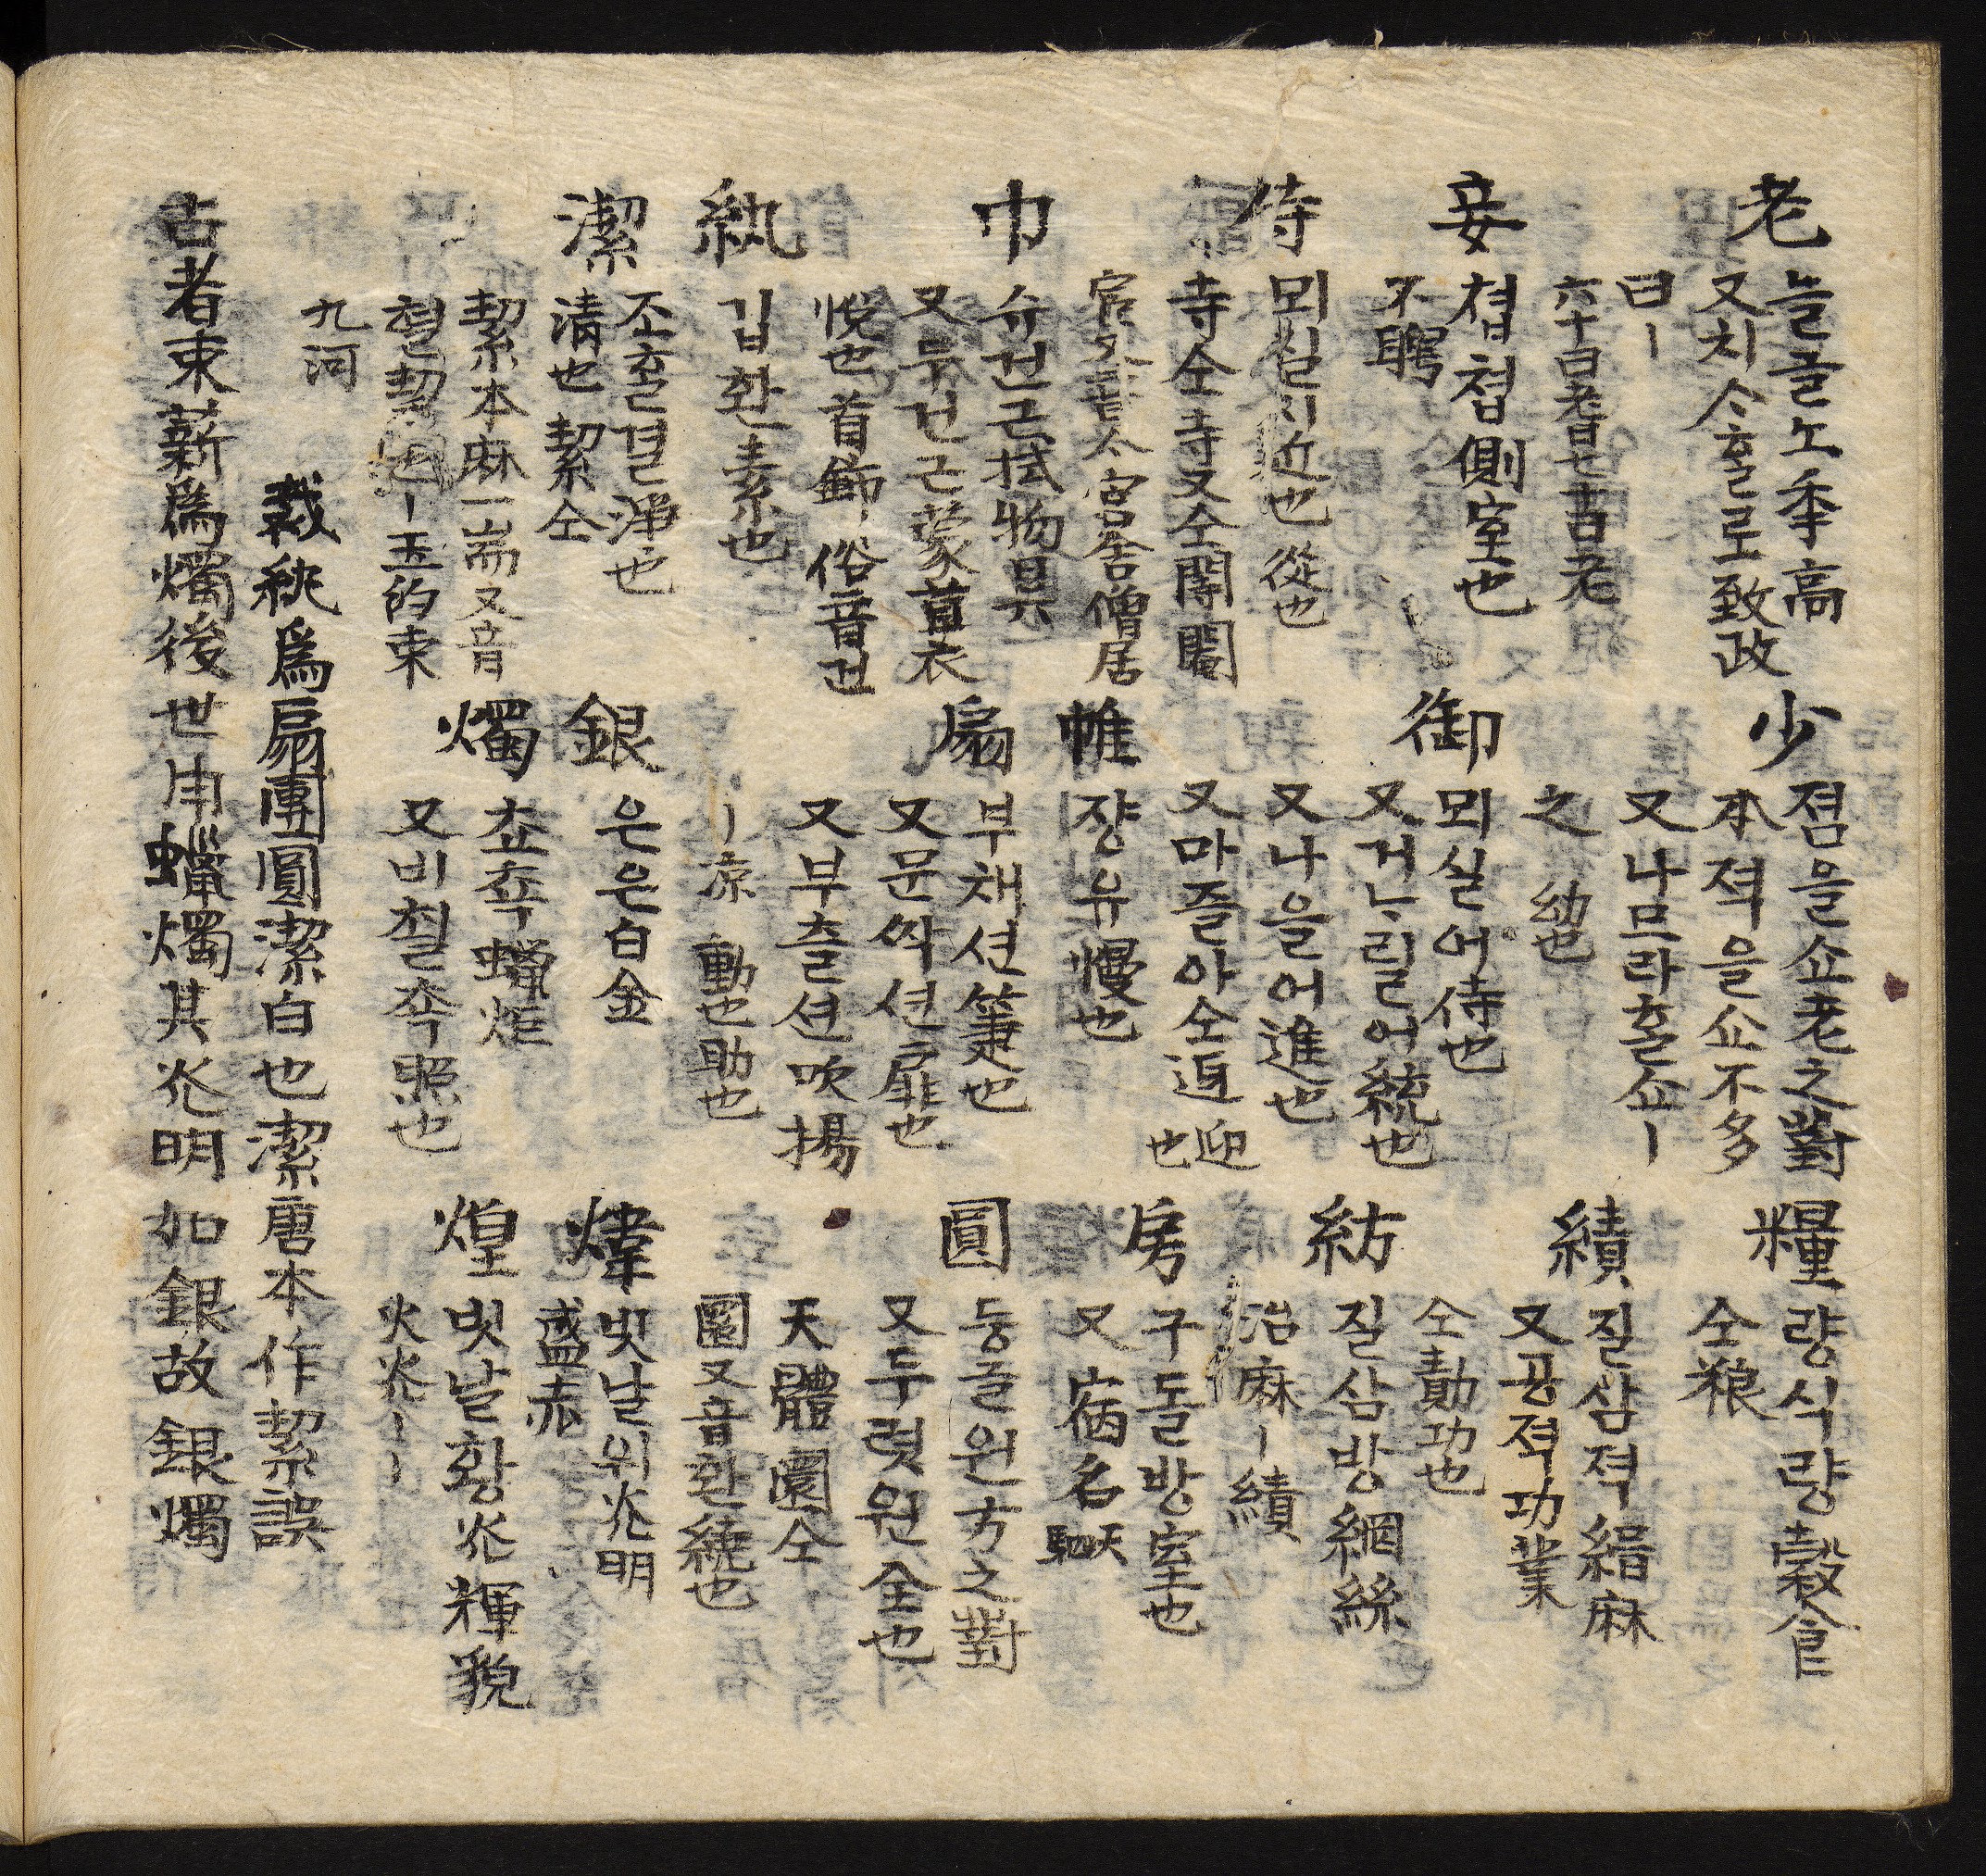 老 늘글노年高
又치人흘로致政
曰ㅣ
六十曰耆七十曰老
少 졈믈쇼老之對
本젹을쇼不多
又나므라흘쇼ㅣ
之 幼也
糧 량식량穀食
仝粮
妾 쳡쳡側室也
不聘
御 뫼실어侍也
又거ᄂᆞ릴어統也
又나을어進也
又마즐아仝迓 迎也
績 질삼젹緝麻
又공젹功業
仝勣功也
侍 뫼실시近也 從也
寺仝寺又仝閽閣
宮舍僧居
帷 쟝유幔也
紡 질삼방網絲
治麻ㅣ績
巾 슈건근拭物具
又두건근蒙首衣
帨也 首飾 俗音건
扇 부채션箑也
又문싹션扉也
又부츨션吹揚
ㅣ凉 動也助也
房 구돌방室也
又宿名 天駟
紈 깁환素也
圓 둥글원方之對
又두렷원全也
天體圜仝
圜又音환繞也
潔 조흘결淨也
淸也 絜仝
絜本麻一耑又音
혈 ㅣ 玉的束
九河
銀 은은白金
煒 빗날위光明
盛赤
燭 쵸쵹蠟炬
又비췰쵹照也
煌 빗날황光輝貌
火光ㅣㅣ
裁紈爲扇團圓潔白也潔唐本作絜誤
古者束薪爲燭後世用蠟燭其光明如銀故銀燭